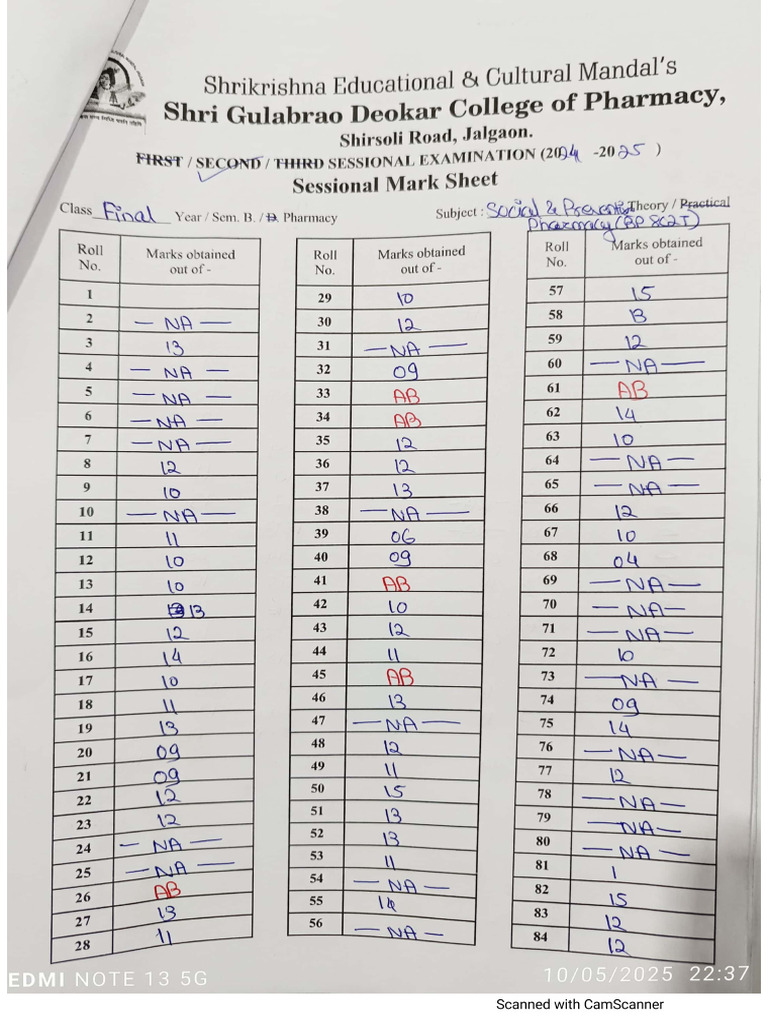 Shrikrishna Educational & Cultural Mandal's
Shri Gulabrao Deokar College of Pharmacy,
Shirsoli Road, Jalgaon.
FIRST / SECOND / THIRD SESSIONAL EXAMINATION (2024 -2025 )
Sessional Mark Sheet
Class Final Year / Sem. B. / D. Pharmacy Subject : Social & Preventive Theory / Practical
Pharmacy (BP 802T)
Roll No. Marks obtained out of -
1
2 — NA —
3 13
4 — NA —
5 — NA —
6 — NA —
7 — NA —
8 12
9 10
10 — NA —
11 11
12 10
13 10
14 13
15 12
16 14
17 10
18 11
19 13
20 09
21 09
22 12
23 12
24 — NA —
25 — NA —
26 AB
27 13
28 11
Roll No. Marks obtained out of -
29 10
30 12
31 — NA —
32 09
33 AB
34 AB
35 12
36 12
37 13
38 — NA —
39 06
40 09
41 AB
42 10
43 12
44 11
45 AB
46 13
47 — NA —
48 12
49 11
50 15
51 13
52 13
53 11
54 — NA —
55 14
56 — NA —
Roll No. Marks obtained out of -
57 15
58 13
59 12
60 — NA —
61 AB
62 14
63 10
64 — NA —
65 — NA —
66 12
67 10
68 04
69 — NA —
70 — NA —
71 — NA —
72 10
73 — NA —
74 09
75 14
76 — NA —
77 12
78 — NA —
79 — NA —
80 — NA —
81 1
82 15
83 12
84 12
EDMI NOTE 13 5G
10/05/2025 22:37
Scanned with CamScanner